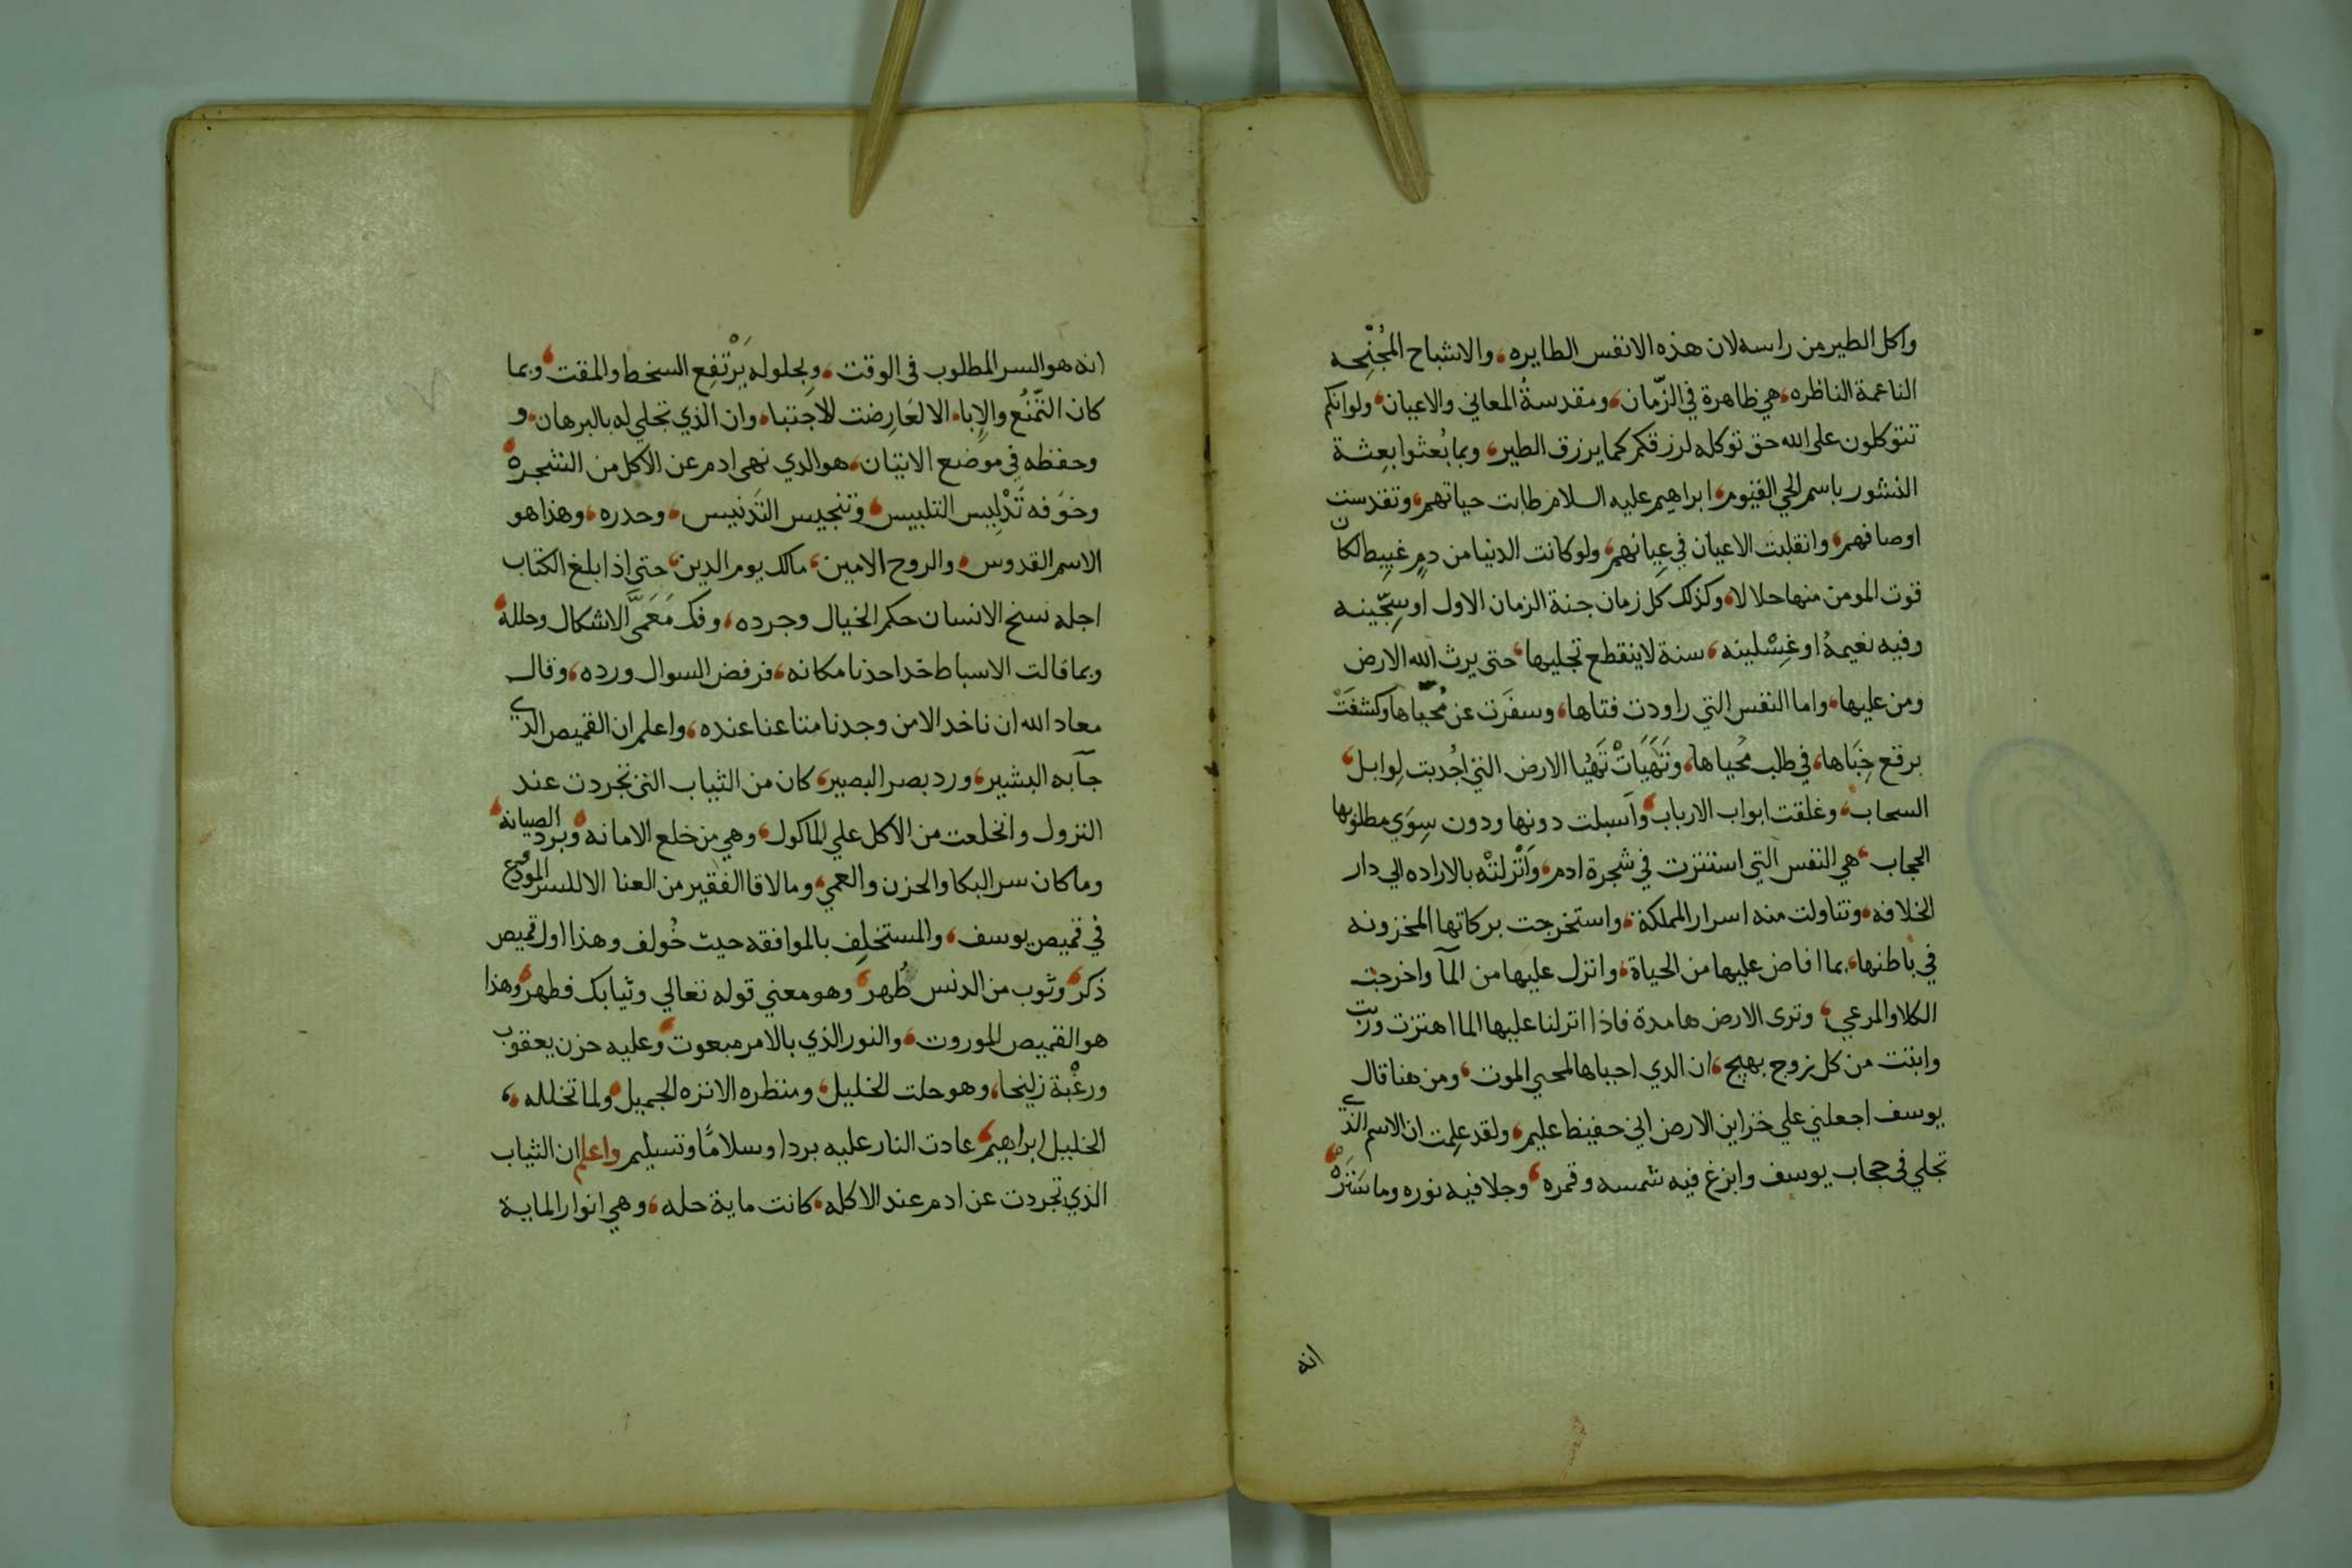 واكل الطير من راسه لان هذه الانفس الطايره، والاشباح المُجْنِحه
الناعمة الناظره، هي ظاهرة في الزّمان، ومقدسةُ المعاني والاعيان، ولو انكم
تتوكلون على الله حق توكله لرزقكم كما يرزق الطير، وبما بُعثوا بِعِثة
النشور باسم الحي القيوم، ابراهيم عليه السلام طابت حياتهم، وتقدست
اوصافهم، وانقلبت الاعيان في عِيانهم، ولو كانت الدنيا من دمٍ غبيط لكان
قوت المومن منها حلالا، وكذلك كل زمان جنة الزمان الاول او سِجّينه
وفيه نعيمهُ او غِسْلينه، سنة لا ينقطع تجليها، حتى يرث الله الارض
ومن عليها، واما النفس التي راودت فتاها، وسفَرت عن مُحيّاها وكشفَتْ
برقع خِبَاها، في طلب مَحياها، وتَهَيَاتْ تَهَيُا الارض التي اجُدبت لِوابل،
السحاب، وغلقت ابواب الارباب، وآسبلت دونها ودون سِوَي مطلوبها
الحجاب، هي النفس التي استنزت في شجرة ادم، وَانْزلتْه بالاراده الي دار
الخلافه، وتناولت منه اسرار المملكة، واستخرجت بركاتها المخزونه
في باطنها، بما افاض عليها من الحياة، وانزل عليها من المآ واخرجت
الكلا والمرعي، وترى الارض هامدة فاذا انزلنا عليها الما اهتزت وربت
وانبتت من كل زوج بهيج، ان الدي احياها لمحي الموت، ومن هنا قال
يوسف اجعلني علي خزاين الارض اني حفيظ عليم، ولقد عِلمت ان الاسم الذي
تجلي في حجاب يوسف وابزغ فيه شمسه وقمره، وجلا فيه نوره وما سَتَرَهُ،
انه
انه هو السر المطلوب في الوقت، وبِحلوله يَرْتَفِع السخط والمقت، وبما
كان التّمنُع والاِبا، الا لعَارِضت للاجتبا، وان الذي تجلي له بالبرهان، و
وحفظه في موضع الاتيان، هو الدي نهى ادم عن الاكل من الشجره،
وخوَفه تَدْلِيس التلبيس، وتنجيس التَدنيس، وحدره، وهذا هو
الاسم القدوس، والروح الامين، مالك يوم الدين، حتي اذا بلغ الكتاب
اجله نسخ الانسان حكم الخيال وجرده، وفك مَعَمَّى الاشكال وحلله،
وبما قالت الاسباط خد احدنا مكانه، فرفض السوال ورده، وقال
معاد الله ان ناخد الا من وجدنا متاعنا عنده، واعلم ان القميص الذي
جآ به البشير، ورد بصر البصير، كان من الثياب التي تجردت عند
النزول وانخلعت من الاكل علي الماكول، وهي من خلع الامانه، وبرد الصيانه،
وما كان سر البكا والحزن والعمي، وما لاقا الفقير من العنا الا للسر المودع
في قميص يوسف، والمستخلِف بالموافقه حيث خُولف وهذا اول قميص
ذكر، وثوب من الدنس طُهر، وهو معني قوله تعالي وثيابك فطهر، وهذا
هو القميص الموروت، والنور الذي بالامر مبعوت، وعليه حزن يعقوب
ورغْبة زليخا، وهو حلت الخليل، ومنظره الانزه الجميل، ولما تخلله،
الخليل ابراهيم، عادت النار عليه بردا وسلامًا وتسليم واعلم ان الثياب
الذي تجردت عن ادم عند الاكله، كانت ماية حله، وهي انوار الماية